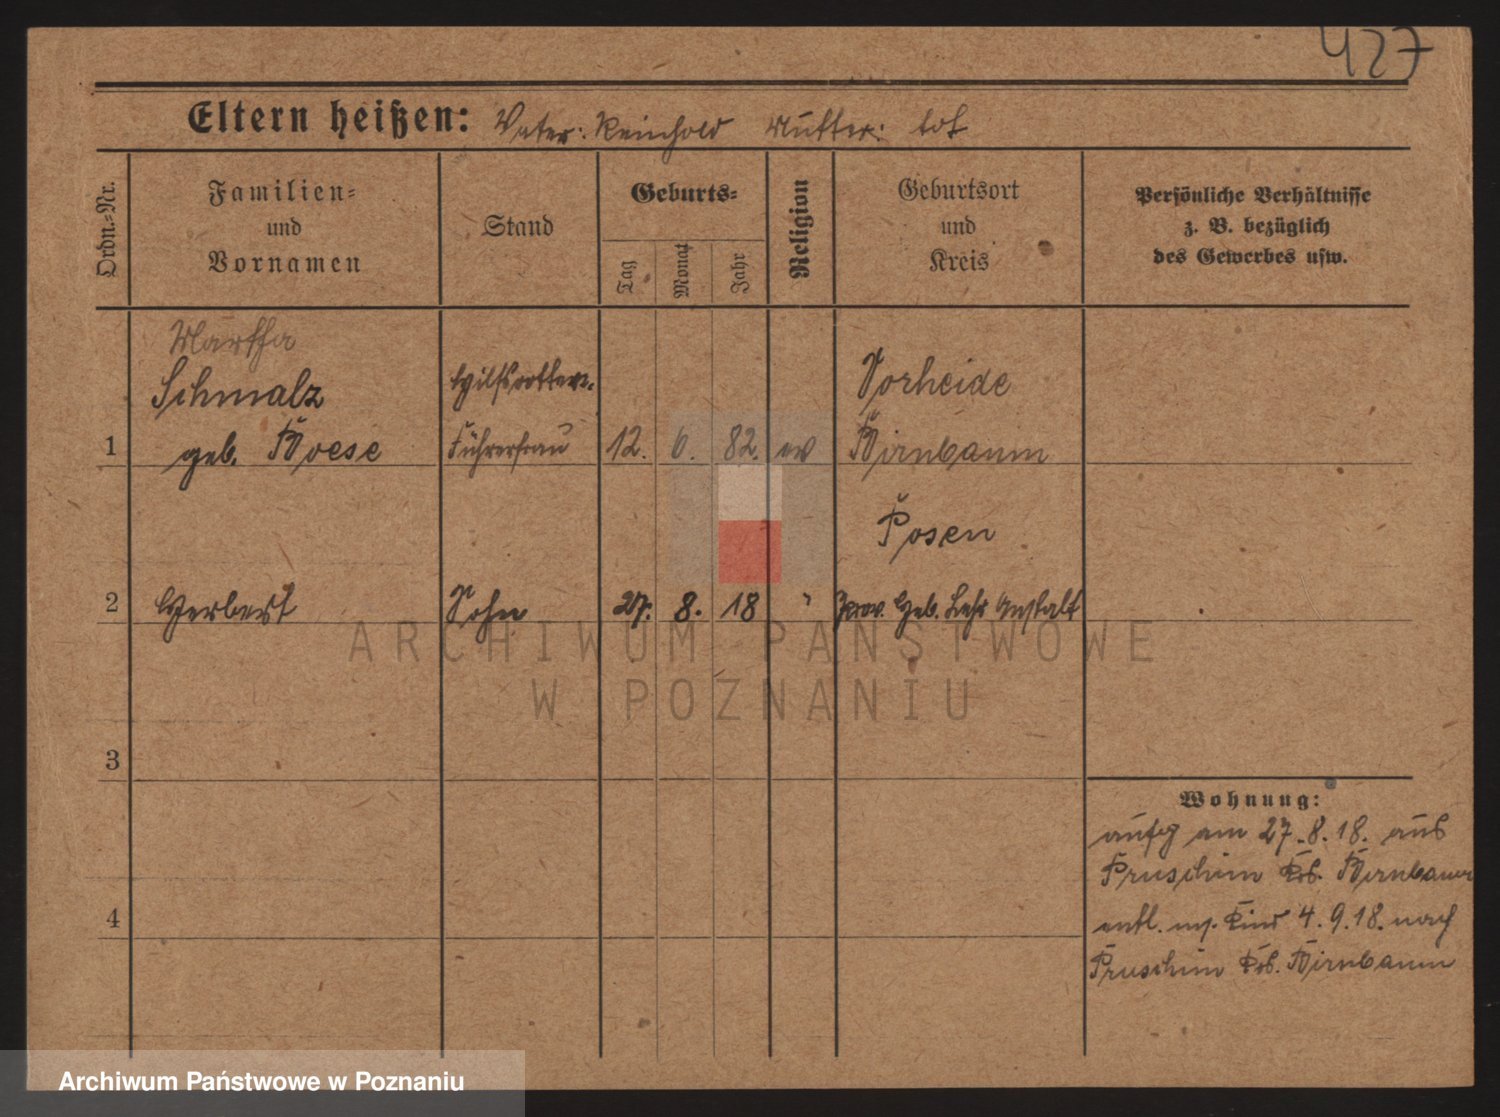 427
Eltern heißen: Vater: Reinhold Mutter: tot
Ordn.-Nr.
Familien-
und
Vornamen
Stand
Geburts-
Tag
Monat
Jahr
Religion
Geburtsort
und
Kreis
Persönliche Verhältnisse
z. B. bezüglich
des Gewerbes usw.
Martha
Schmalz
geb. Boese
Hilfsrotten-
Führerfrau
1
12. 6. 82. ev
Vorheide
Birnbaum
Posen
2 Herbert Sohn 27. 8. 18 " Prov. Heb. Lehr Anstalt
3
4
Wohnung:
aufg am 27.8.18. aus
Pruschim Krs. Birnbaum
entl. m. Kind 4.9.18. nach
Pruschim Krs. Birnbaum
ARCHIWUM PAŃSTWOWE
W POZNANIU
Archiwum Państwowe w Poznaniu